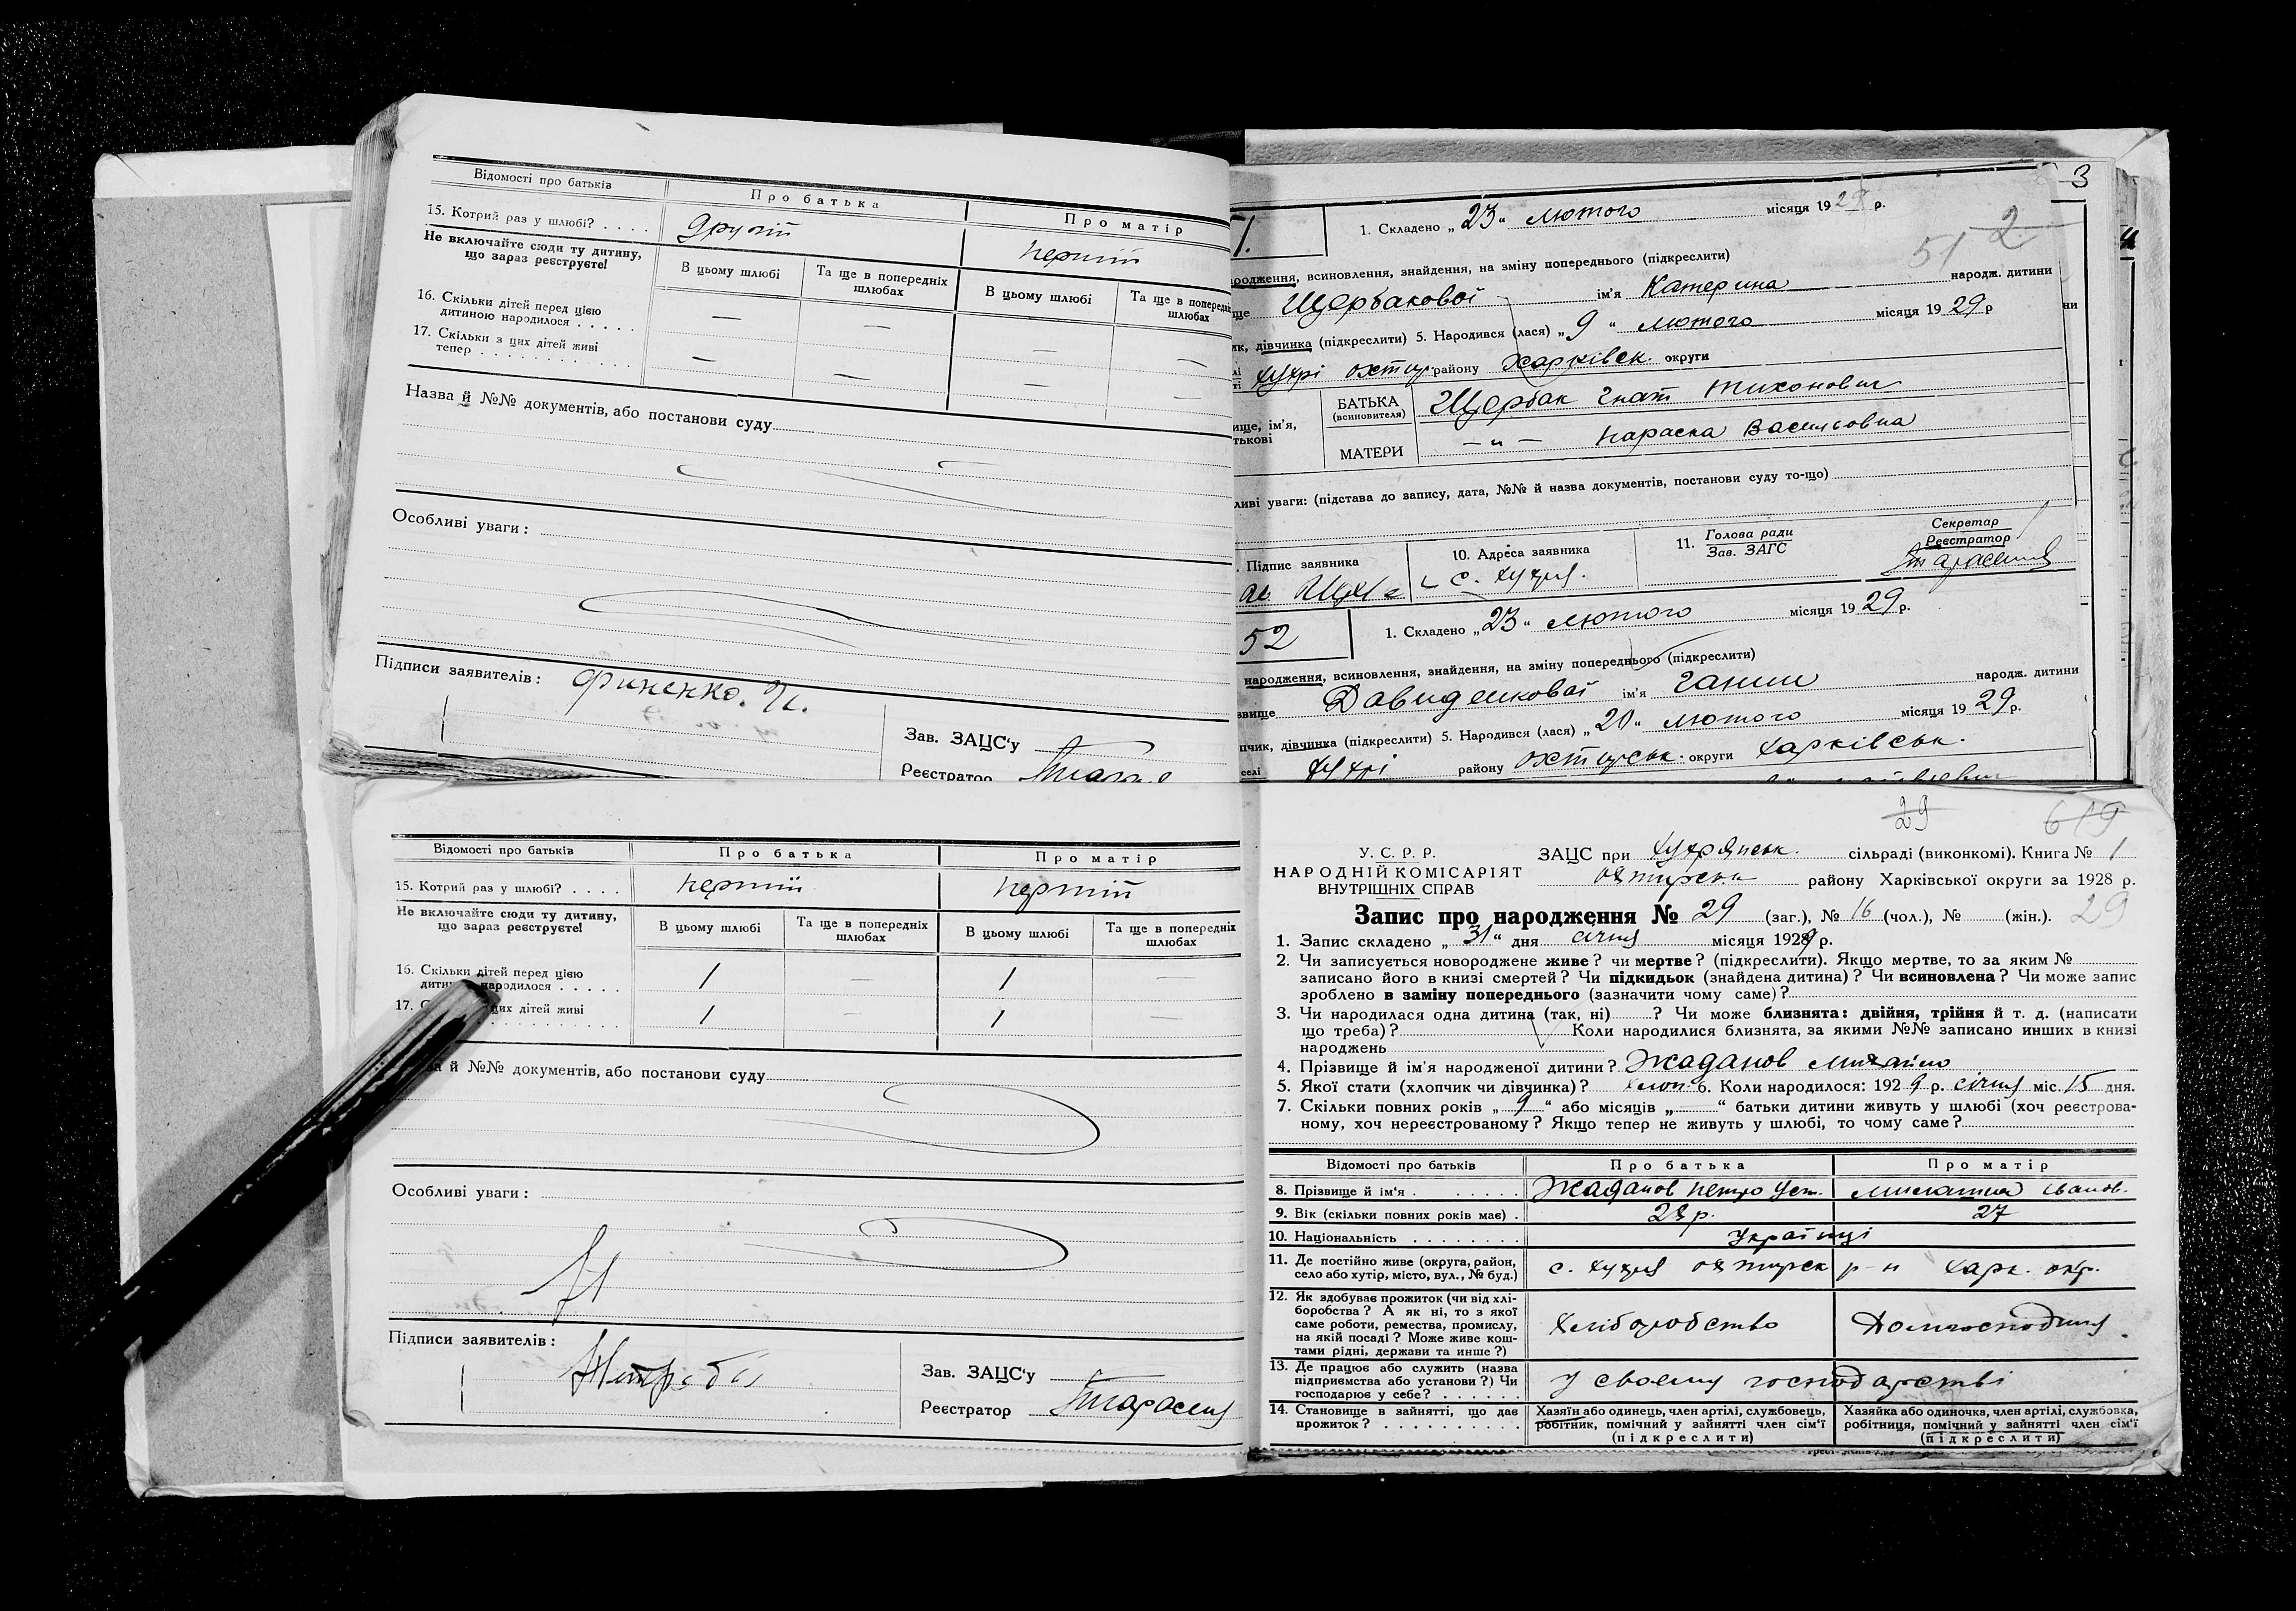 Відомості про батьків
Про батька
Про матір
15. Котрий раз у шлюбі? . . . .
другий
перший
Не включайте сюди ту дитину,
що зараз реєструєте!
В цьому шлюбі
Та ще в попередніх
шлюбах
В цьому шлюбі
Та ще в попередн
шлюбах
16. Скільки дітей перед цією
дитиною народилося . . . . .
— — — —
17. Скільки з цих дітей живі
тепер . . . . . . . . . . .
— — — —
Назва й №№ документів, або постанови суду
Особливі уваги:
Підписи заявителів:
Финенко. И.
Зав. ЗАЦС'у
Реєстратор
3
1. Складено „23“ лютого місяця 1929 р.
2
51
народження, всиновлення, знайдення, на зміну попереднього (підкреслити)
ще Щербакової ім'я Катерина народж. дитини
ик, дівчинка (підкреслити) 5. Народився (лася) „9“ лютого місяця 1929 р
хухрі охтир. району Харківськ. округи
ище, ім'я,
тькові
БАТЬКА
(всиновителя)
Щербак Гнат Тихонович
МАТЕРИ
—„— Параска Василовна
ливі уваги: (підстава до запису, дата, №№ й назва документів, постанови суду то-що)
. Підпис заявника
10. Адреса заявника
с. хухря.
11. Голова ради
Зав. ЗАГС
Секретар
Реєстратор
52
1. Складено „23“ лютого місяця 1929 р.
народження, всиновлення, знайдення, на зміну попереднього (підкреслити)
звище Давиденкової ім'я Ганни народж. дитини
пчик, дівчинка (підкреслити) 5. Народився (лася) „20“ лютого місяця 1929 р.
селі хухрі району охтирськ. округи харківськ.
Відомості про батьків
Про батька
Про матір
15. Котрий раз у шлюбі? . . . .
перший
перший
Не включайте сюди ту дитину,
що зараз реєструєте!
В цьому шлюбі
Та ще в попередніх
шлюбах
В цьому шлюбі
Та ще в попередніх
шлюбах
16. Скільки дітей перед цією
дити народилося . . . . .
1 — 1 —
17. С цих дітей живі
1 — 1 —
а й №№ документів, або постанови суду
Особливі уваги:
Підписи заявителів:
Зав. ЗАЦС'у
Реєстратор
29
619
У. С. Р. Р.
НАРОДНІЙ КОМІСАРІЯТ
ВНУТРІШНІХ СПРАВ
ЗАЦС при хухрянськ. сільраді (виконкомі). Книга № 1
охтирськ району Харківської округи за 1928 р.
Запис про народження № 29 (заг.), № 16 (чол.), № (жін.). 29
1. Запис складено „31“ дня січня місяця 1929 р.
2. Чи записується новороджене живе? чи мертве? (підкреслити). Якщо мертве, то за яким №
записано його в книзі смертей? Чи підкидьок (знайдена дитина)? Чи всиновлена? Чи може запис
зроблено в заміну попереднього (зазначити чому саме)?
3. Чи народилася одна дитина (так, ні) ? Чи може близнята: двійня, трійня й т. д. (написати
що треба)? Коли народилися близнята, за якими №№ записано инших в книзі
народжень
4. Прізвище й ім'я народженої дитини? Жаданов Михайло
5. Якої стати (хлопчик чи дівчинка)? хлоп. 6. Коли народилося: 1929 р. січня міс. 15 дня.
7. Скільки повних років „9“ або місяців „ “ батьки дитини живуть у шлюбі (хоч реєстрова-
ному, хоч нереєстрованому? Якщо тепер не живуть у шлюбі, то чому саме?
Відомості про батьків
Про батька
Про матір
8. Прізвище й ім'я . . . . . .
Жаданов Петро Уст.
Іванов.
9. Вік (скільки повних років має) .
28 р.
27
10. Національність . . . . . . . .
Українці
11. Де постійно живе (округа, район,
село або хутір, місто, вул., № буд.)
с. хухря охтирськ р-н харк. окр.
12. Як здобуває прожиток (чи від хлі-
боробства? А як ні, то з якої
саме роботи, ремества, промислу,
на якій посаді? Може живе кош-
тами рідні, держави та инше?)
Хліборобство
Домгосподиня
13. Де працює або служить (назва
підприємства або установи?) Чи
господарює у себе? . . . . . .
У своему господарстві
14. Становище в зайнятті, що дає
прожиток? . . . . . . . . . .
Хазяїн або одинець, член артілі, службовець,
робітник, помічний у зайнятті член сім'ї
(підкреслити)
Хазяйка або одиночка, член артілі, службовка,
робітниця, помічний у зайнятті член сім'ї
(підкреслити)